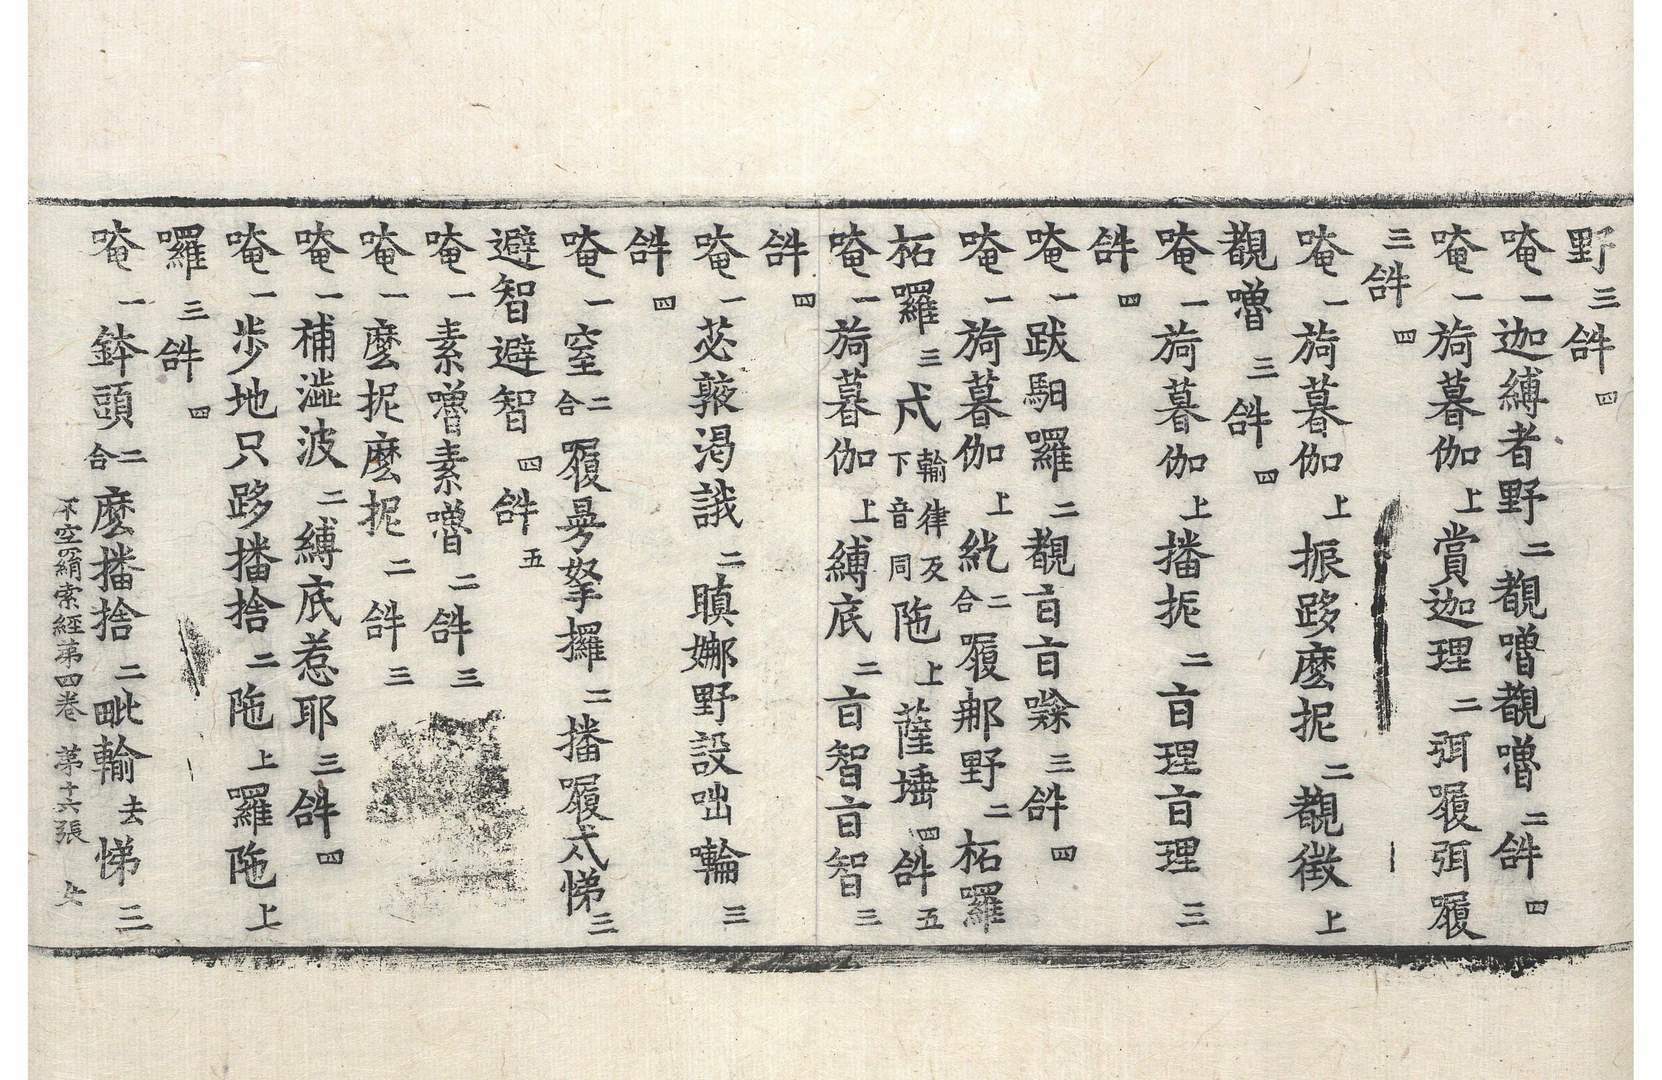 野三𤙖四
唵一迦縛者野二覩嚕覩嚕二𤙖四
唵一旖暮伽上賞迦理二弭履弭履
三𤙖四
唵一旖暮伽上振跢麼抳二覩徵上
覩嚕三𤙖四
唵一旖暮伽上播抳二𤙖理𤙖理三
𤙖四
唵一跋馹囉二覩
唵一旖暮伽上紇二合履娜野二柘囉
柘囉三輸律反下音同陁上薩埵四𤙖五
唵一旖暮伽上縛底二智智三
𤙖四
唵一苾㨖渴誐二瞋娜野設咄嚕三
𤙖四
唵一窒二合履拏攞二播履弟三
避智避智四𤙖五
唵一素嚕素嚕二𤙖三
唵一麼抳麼抳二𤙖三
唵一補澁波二縛底惹耶三𤙖四
唵一步地只跢播捨二陁上囉陁上
囉三𤙖四
唵一鉢頭二合麼播捨二毗輸去悌三
不空羂索經第四卷 第十六張 女